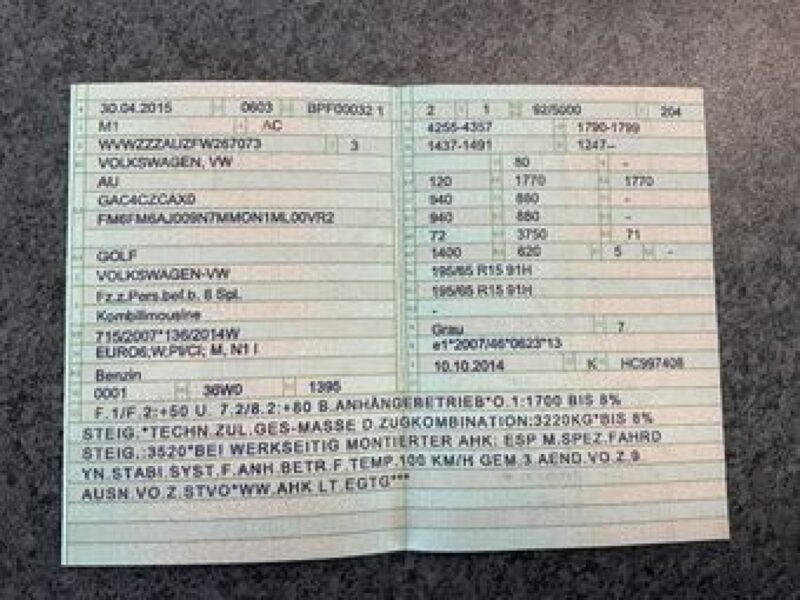 30.04.2015 0603 BPF00032 1
M1 AC
WVWZZZAUZFW267073 3
VOLKSWAGEN, VW
AU
GAC4CZCAX0
FM6FM6AJ009N7MMON1ML00VR2
GOLF
VOLKSWAGEN-VW
Fz.z.Pers.bef.b. 8 Spl.
Kombilimousine
715/2007*136/2014W
EURO6;W,PI/CI; M, N1 I
Benzin
0001 36W0 1395
2 1 92/5000 204
4255-4357 1790-1799
1437-1491 1247-
80 -
120 1770 1770
940 880 -
940 880 -
72 3750 71
1400 620 5 -
195/65 R15 91H
195/65 R15 91H
-
Grau 7
e1*2007/46*0623*13
10.10.2014 K HC997408
F.1/F.2:+50 U. 7.2/8.2:+80 B.ANHÄNGEBETRIEB*O.1:1700 BIS 8%
STEIG.*TECHN.ZUL.GES-MASSE D.ZUGKOMBINATION:3220KG*BIS 8%
STEIG.:3520*BEI WERKSEITIG MONTIERTER AHK: ESP M.SPEZ.FAHRD
YN.STABI.SYST.F.ANH.BETR.F.TEMP.100 KM/H GEM.3.AEND.VO.Z.9.
AUSN.VO.Z.STVO*WW.AHK LT.EGTG***